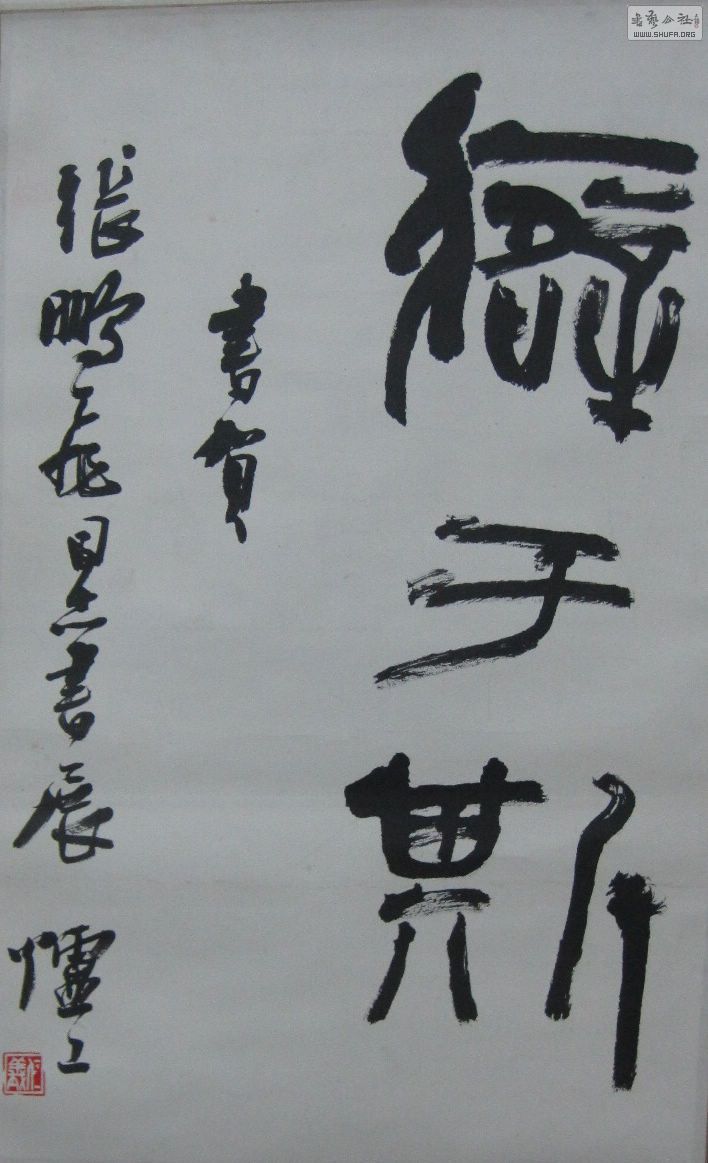 于斯
書賀
張鵬飛同志書展
書藝公社
WWW.SHUFA.ORG